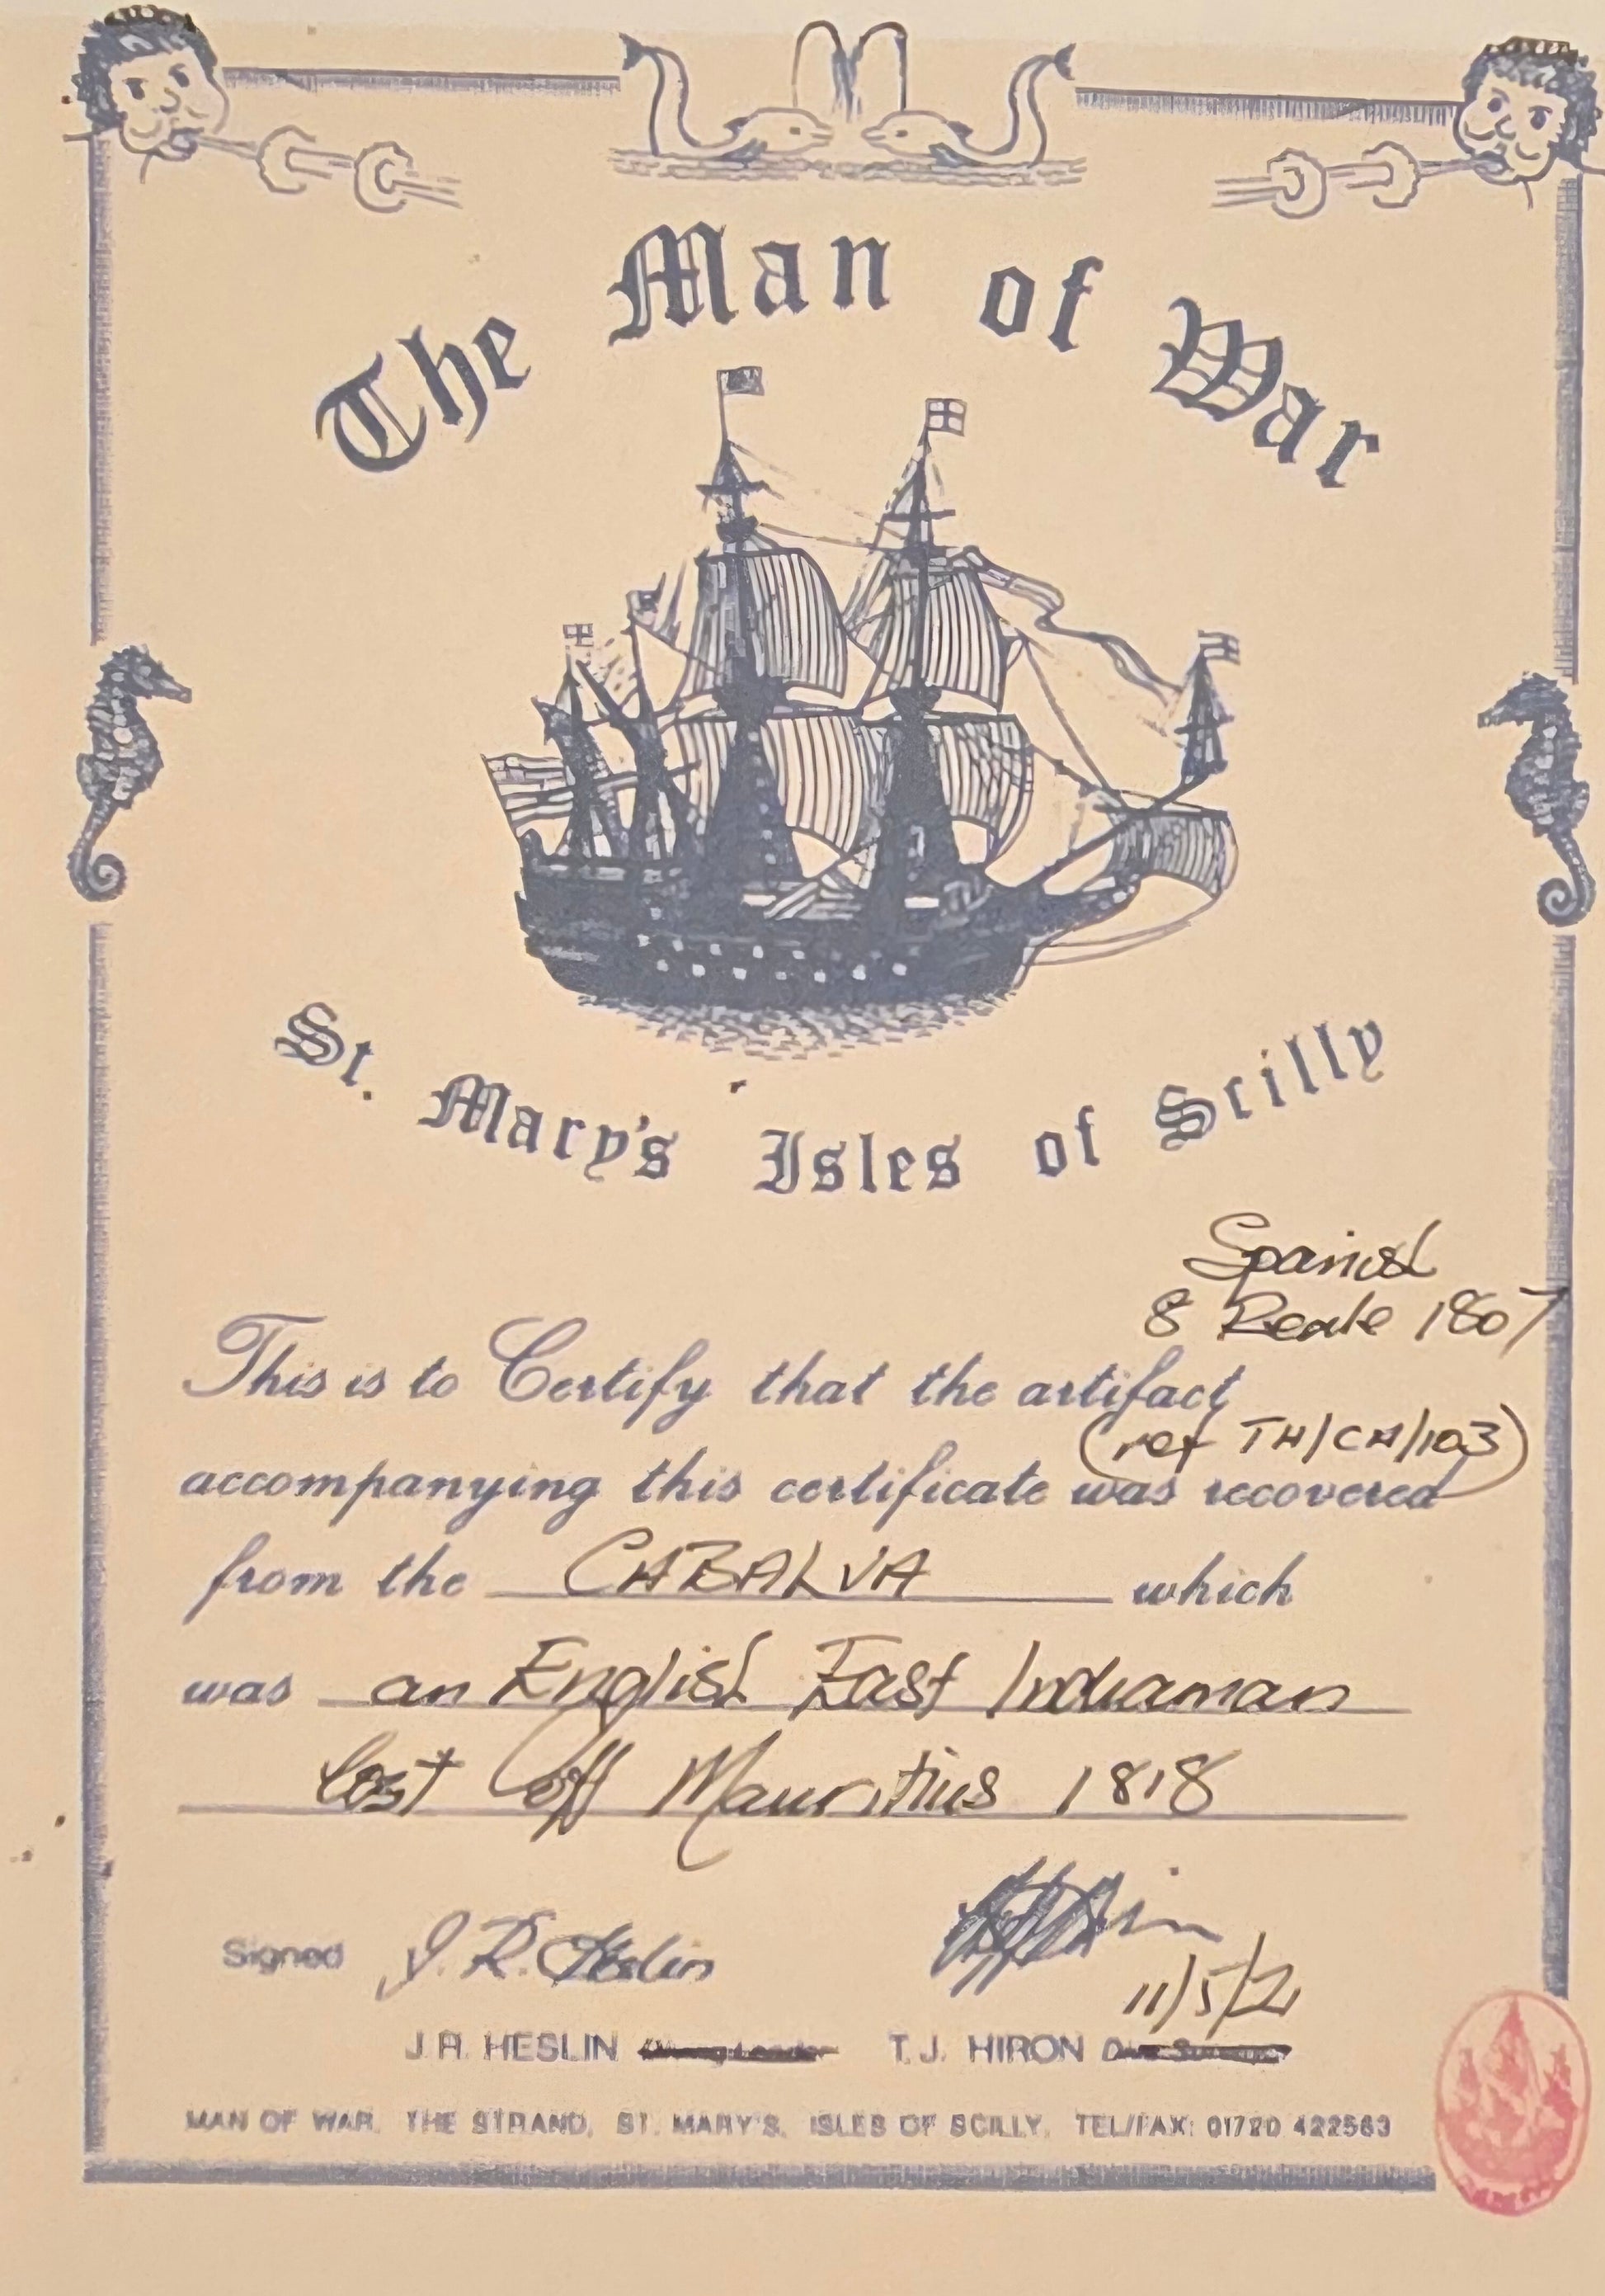 The Man of War
St. Mary's Isles of Scilly
Spanish
8 Reale 1807
This is to Certify that the artifact
(ref TH/CA/103)
accompanying this certificate was recovered
from the CABALVA which
was an English East Indiaman
lost off Mauritius 1818
Signed J. R. Heslin
11/5/21
J.R. HESLIN T.J. HIRON
MAN OF WAR, THE STRAND, ST. MARY'S, ISLES OF SCILLY, TEL/FAX: 01720 422563